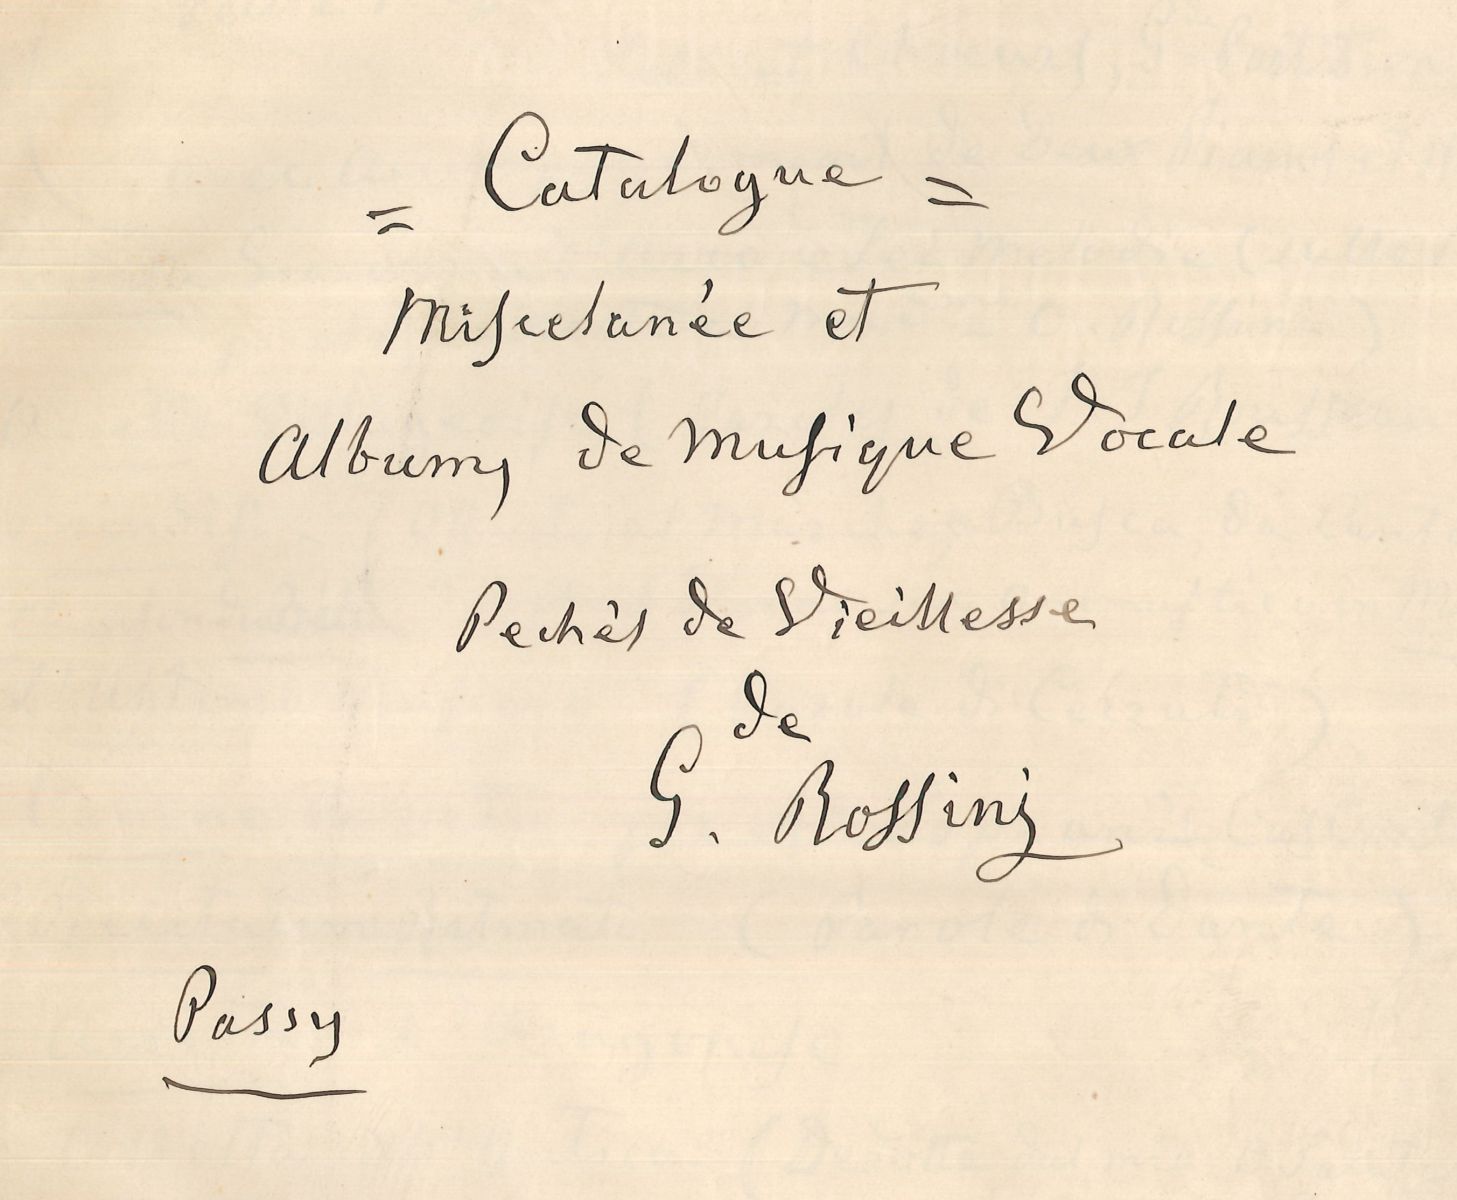 = Catalogue =
Miscelanée et
Albums de Musique Vocale
Pechés de Vieillesse
de
G. Rossini
Passy